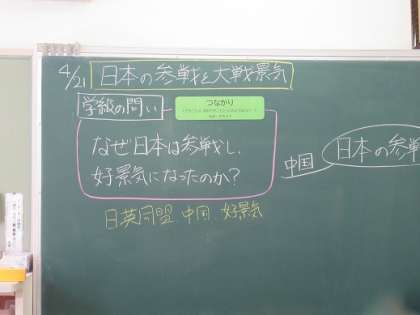 4/21 日本の参戦と大戦景気
学級の問い
つながり
なぜ日本は参戦し、
好景気になったのか？
日英同盟 中国 好景気
中国
日本の参戦